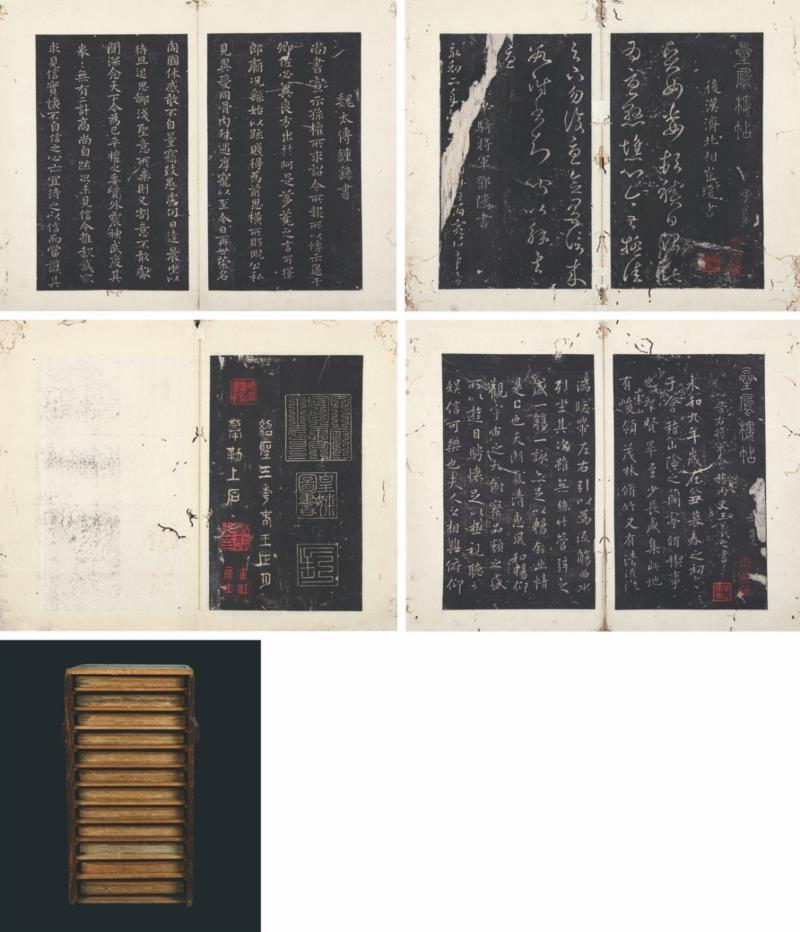 魏太傅鍾繇書
尚書宣示孫權所求詔令所報所以博示逮于
卿佐必冀良方出於阿是芻蕘之言可擇
郎廟況繇始以疏賤得為前恩橫所盼睨公私
見異愛同骨肉殊遇厚寵以至今日再世榮名
同國休慼敢不自量竊致愚慮仍日達晨坐以
待旦退思鄙淺聖意所棄則又割意不敢獻
聞深念天下今為已平權之委質外震神武度其
拳拳無有二計高尚自疏況未見信今推款誠欲
求見信實懷不自信之心亦宜待之以信而當護其
星鳳樓帖
後漢濟北相崔瑗書
賢女委頓積日治此
為憂懸憔心今已極佳
足下勿復憂念有信來
數附書知聞以解其
憂
車騎將軍鄧隲書
皇姝圖書
紹聖三年春王正月
摹勒上石
星鳳樓帖
晉右將軍會稽內史王羲之書
永和九年歲在癸丑暮春之初
于會稽山陰之蘭亭脩稧事
也群賢畢至少長咸集此地
有崇山峻領茂林脩竹又有清流激
湍暎帶左右引以為流觴曲水
列坐其次雖無絲竹管弦之
盛一觴一詠亦足以暢敘幽情
是日也天朗氣清惠風和暢仰
觀宇宙之大俯察品類之盛
所以遊目騁懷足以極視聽之
娛信可樂也夫人之相與俯仰